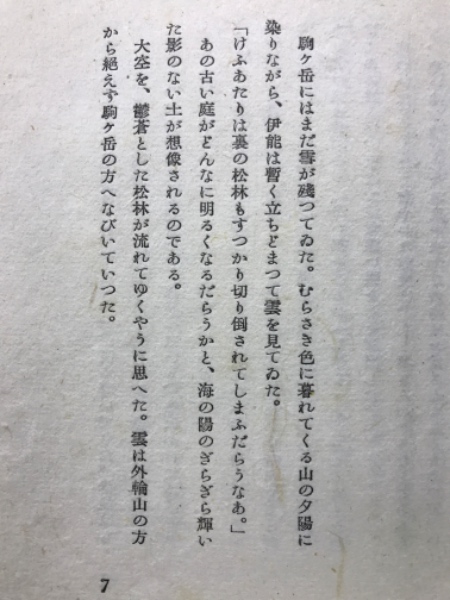 駒ヶ岳にはまだ雪が残つてゐた。むらさき色に暮れてくる山の夕陽に
染りながら、伊能は暫く立ちどまつて雲を見てゐた。
「けふあたりは裏の松林もすつかり切り倒されてしまふだらうなあ。」
あの古い庭がどんなに明るくなるだらうかと、海の陽のぎらぎら輝い
た影のない土が想像されるのである。
大空を、鬱蒼とした松林が流れてゆくやうに思へた。雲は外輪山の方
から絶えず駒ヶ岳の方へなびいていつた。
7